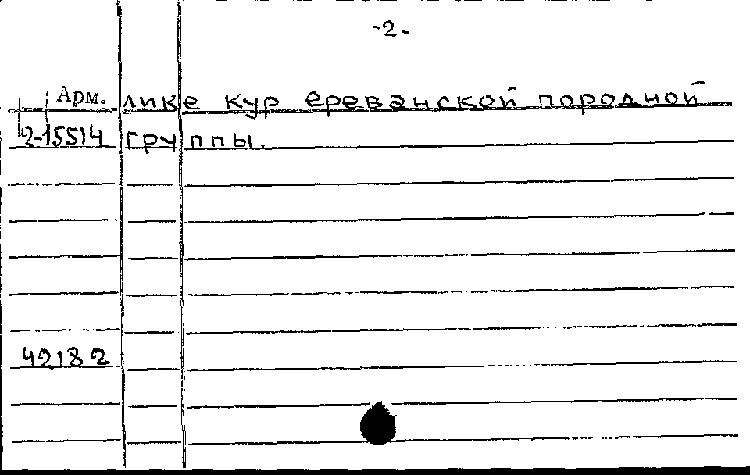 -2-
Арм. лике кур ереванской породной
2-15514 группы.
42182